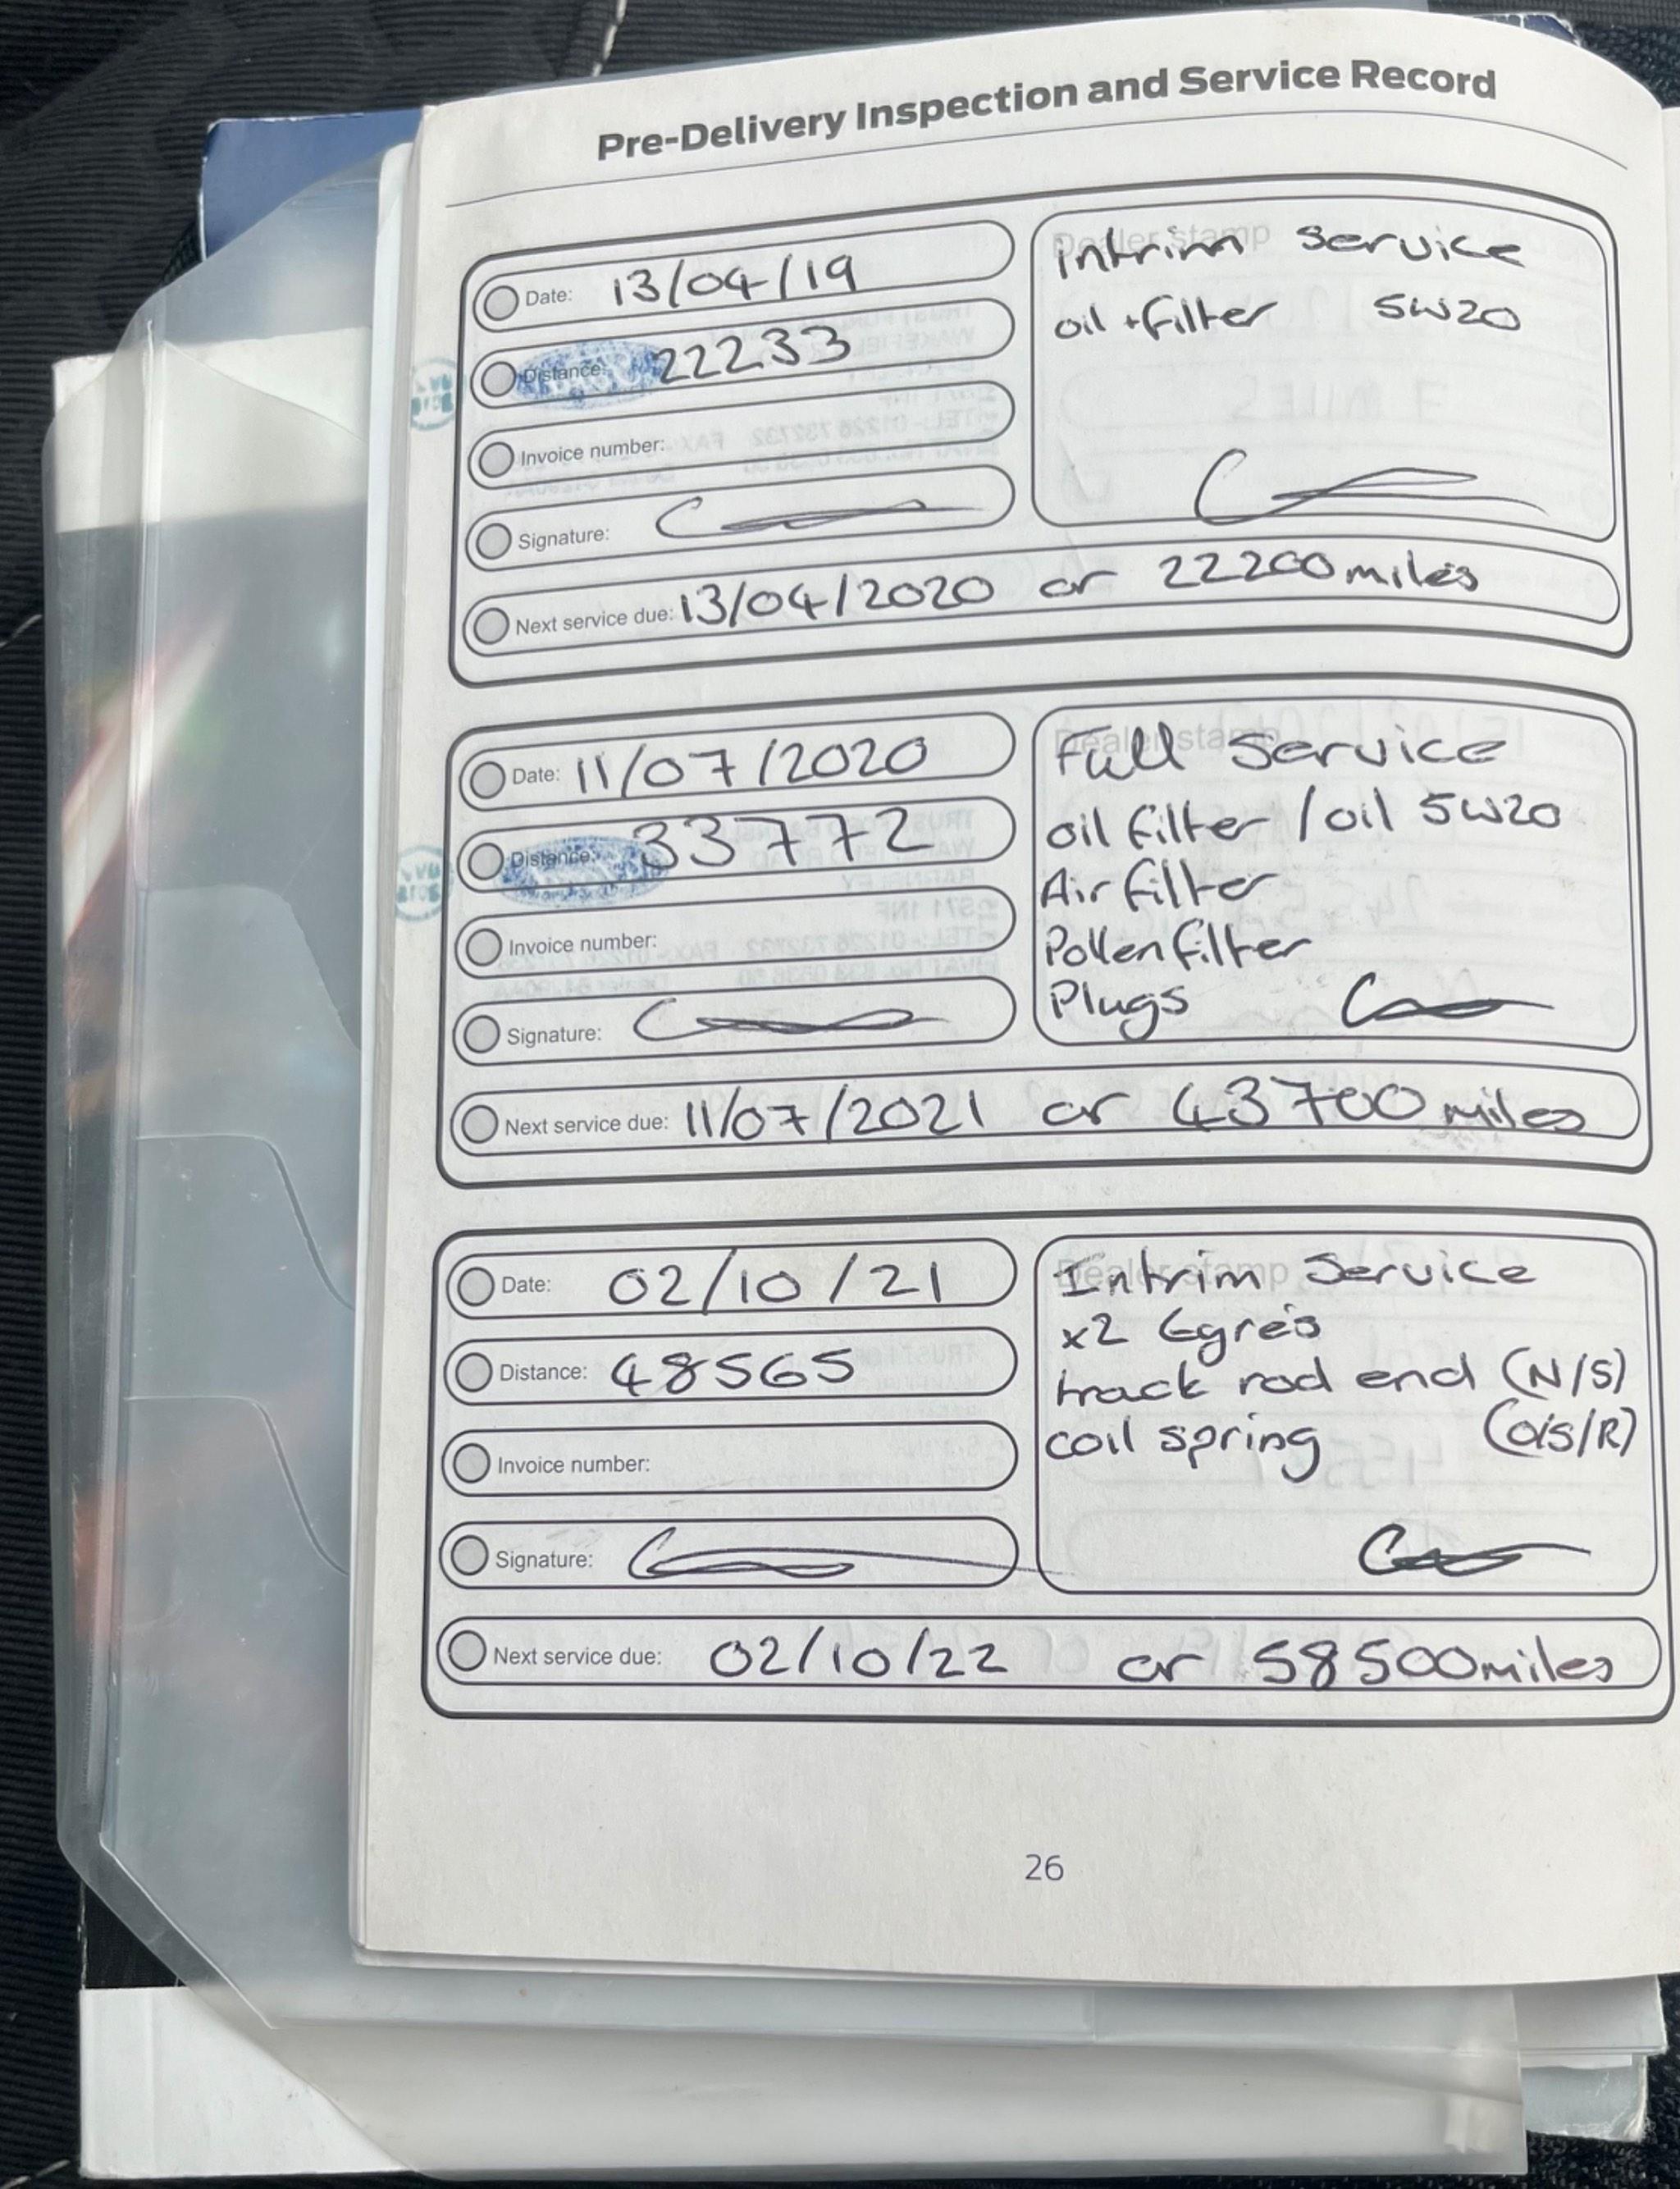 Pre-Delivery Inspection and Service Record
Date: 13/04/19
Distance: 22233
Invoice number:
Signature:
Dealer stamp
intrim service
oil + filter 5W20
Next service due: 13/04/2020 or 22200 miles
Date: 11/07/2020
Distance: 33772
Invoice number:
Signature:
Dealer stamp
Full Service
oil filter / oil 5W20
Air filter
Pollen filter
Plugs
Next service due: 11/07/2021 or 43700 miles
Date: 02/10/21
Distance: 48565
Invoice number:
Signature:
Dealer stamp
Intrim Service
x2
track rod end (N/S)
coil spring (O/S/R)
Next service due: 02/10/22 or 58500 miles
26